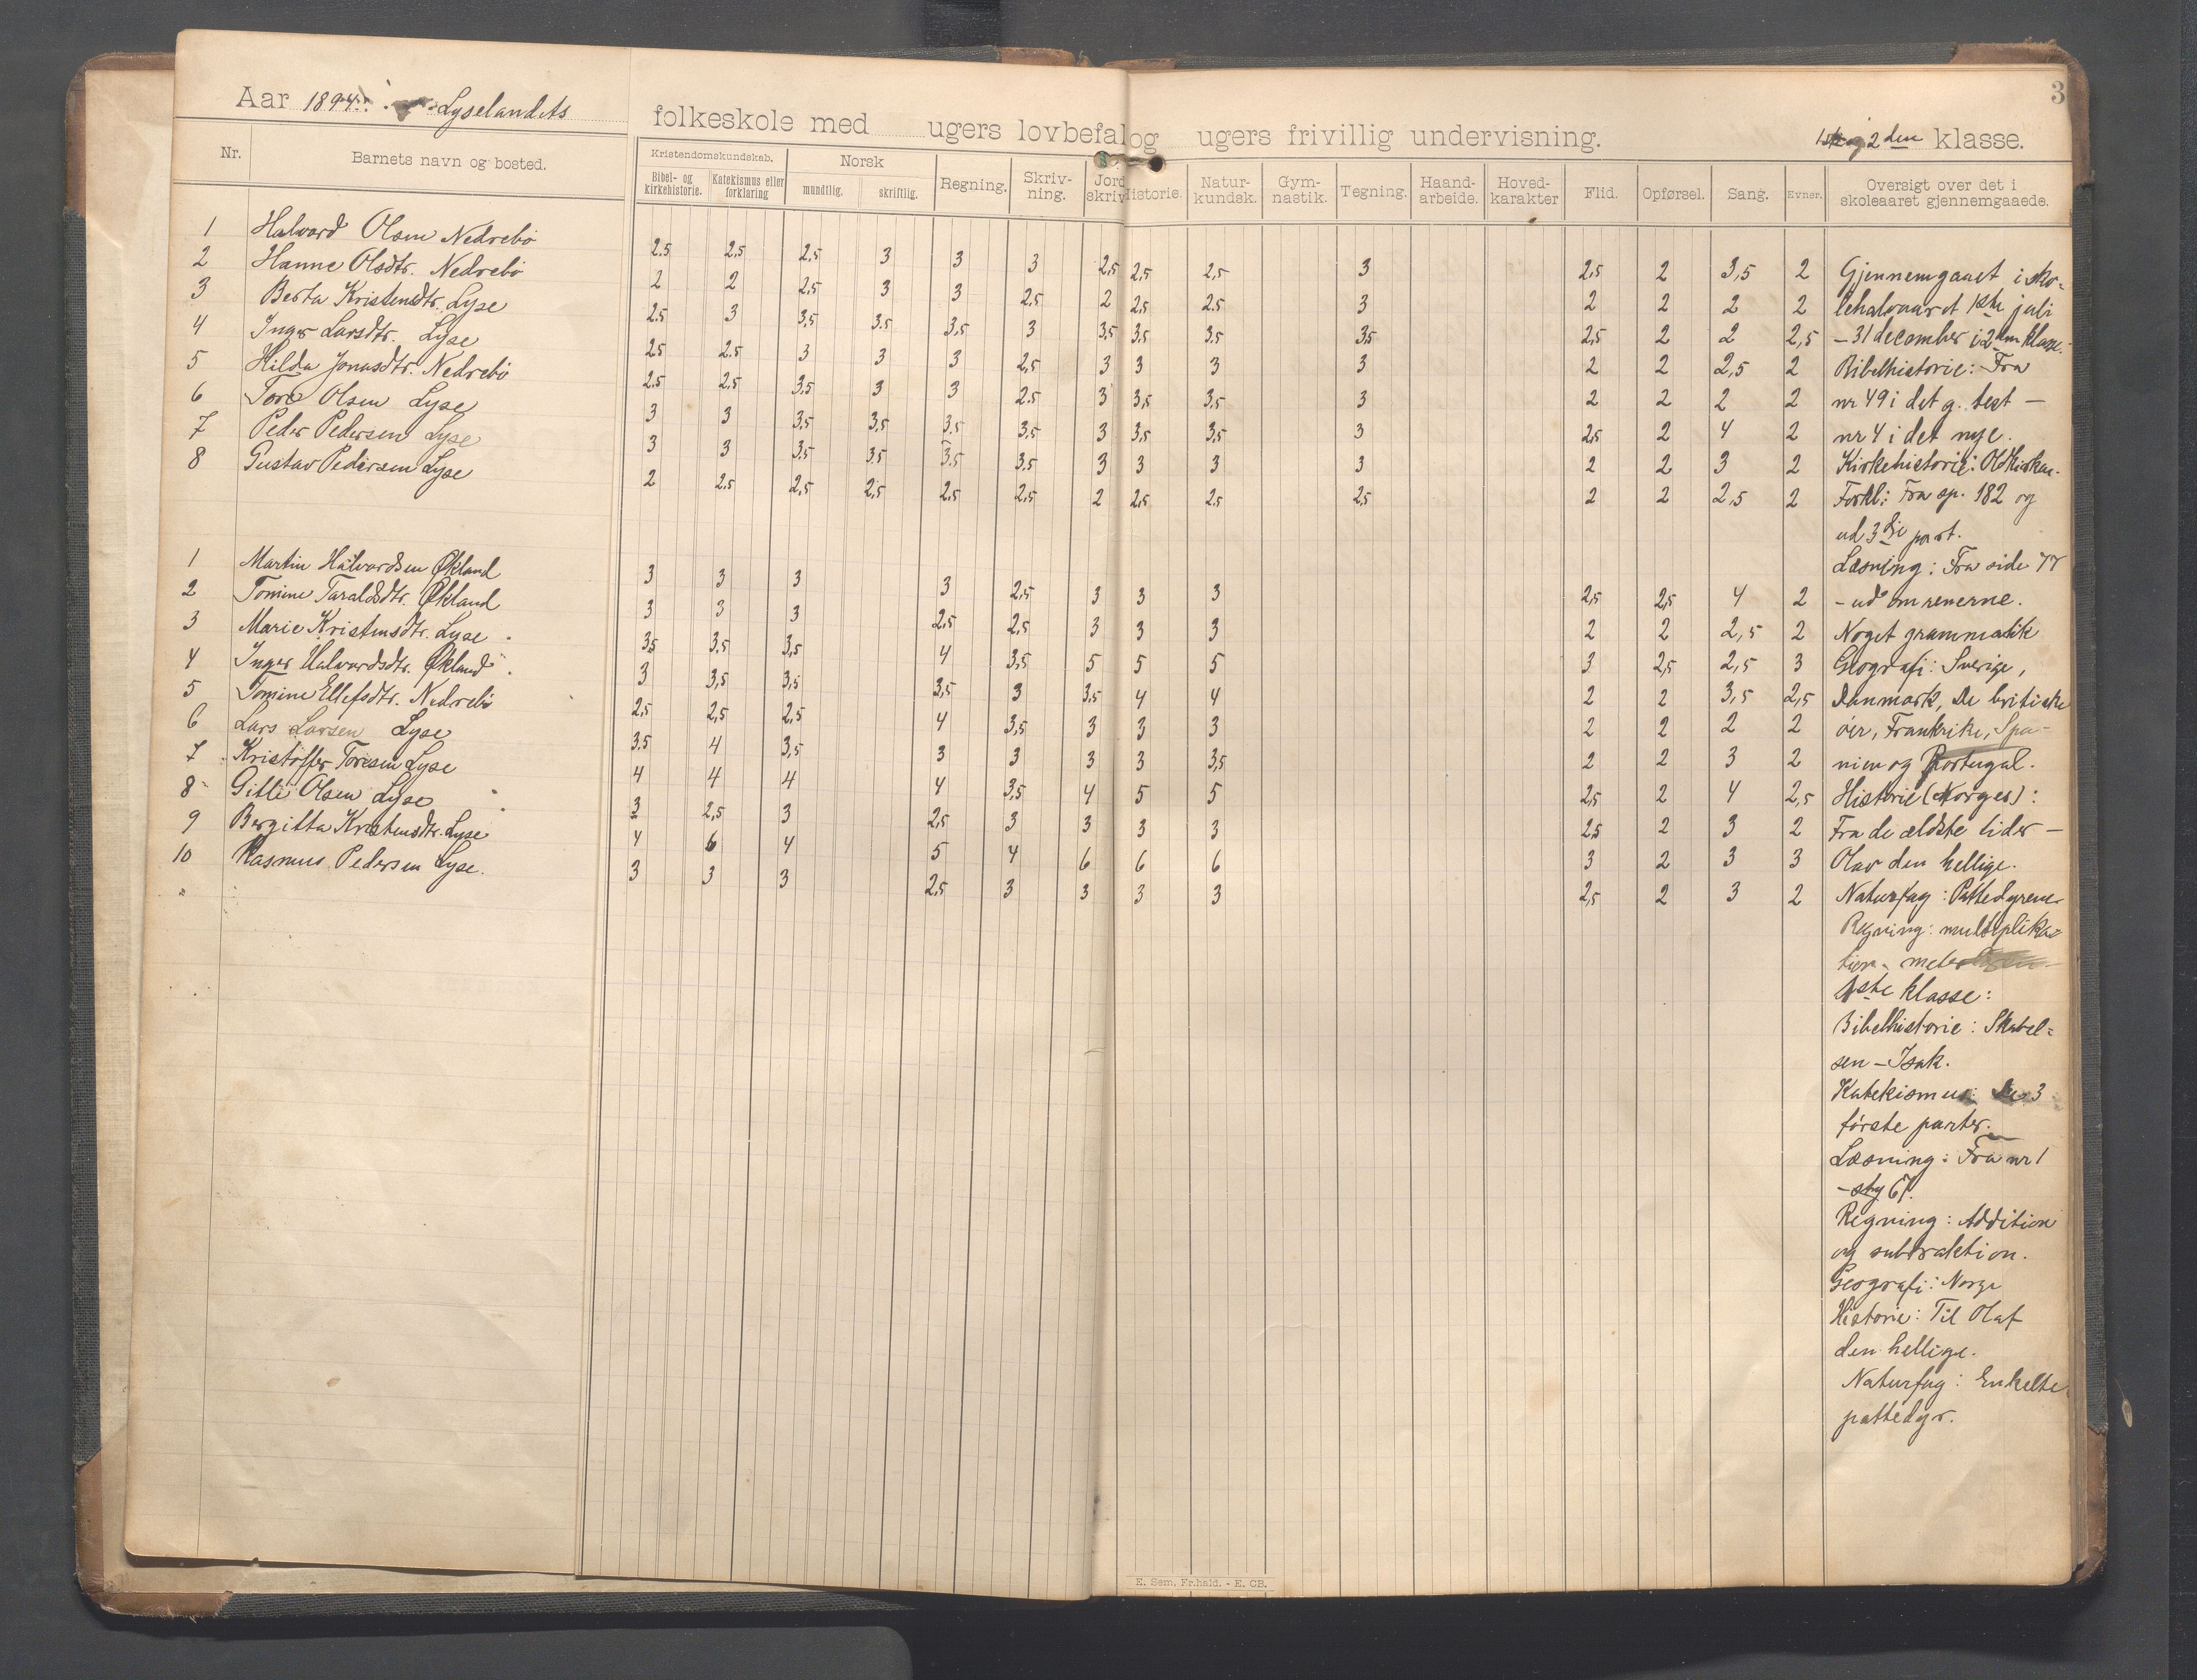 3
Aar 1894 Lyselandets folkeskole med ugers lovbefal og ugers frivillig undervisning. 1ste og 2den klasse.
Nr. Barnets navn og bosted. Kristendomskundskab. Bibel- og kirkehistorie. Katekismus eller forklaring Norsk mundtlig. skriftlig. Regning. Skriv-ning. Jord skriv Historie. Natur-kundsk. Gym-nastik. Tegning. Haand-arbeide. Hoved-karakter Flid. Opførsel. Sang. Evner. Oversigt over det i skoleaaret gjennemgaaede.
1 Halvard Olsen Nedrebö 2.5 2,5 2,5 3 3 3 2,5 2,5 2,5 3 2,5 2 3,5 2
2 Hanne Olsdtr. Nedrebö 2 2 2,5 3 3 2,5 2 2,5 2.5 3 2 2 2 2
3 Berta Kristensdtr. Lyse 2.5 3 3,5 3.5 3,5 3 3,5 3,5 3,5 3,5 2,5 2 2 2,5
4 Inger Larsdtr. Lyse 2,5 2.5 3 3 3 2,5 3 3 3 3 2 2 2,5 2
5 Hilda Jonasdtr. Nedrebö 2.5 2,5 3,5 3 3 2.5 3 3,5 3,5 3 2 2 2 2
6 Tore Olsen Lyse 3 3 3,5 3,5 3,5 3,5 3 3,5 3,5 3 2,5 2 4 2
7 Peder Pedersen Lyse 3 3 3,5 3,5 3,5 3,5 3 3 3 3 2 2 3 2
8 Gustav Pedersen Lyse 2 2.5 2,5 2,5 2,5 2,5 2 2,5 2.5 2,5 2 2 2,5 2
1 Martin Halvardsen Økland 3 3 3 3 2,5 3 3 3 2,5 2,5 4 2
2 Tomine Taraldsdtr. Økland 3 3 3 2,5 2,5 3 3 3 2 2 2,5 2
3 Marie Kristensdtr. Lyse 3,5 3,5 3,5 4 3,5 5 5 5 3 2,5 2,5 3
4 Inger Halvardsdtr. Økland 3 3,5 3,5 3,5 3 3,5 4 4 2 2 3,5 2,5
5 Tomine Ellefsdtr. Nedrebö 2,5 2,5 2,5 4 3,5 3 3 3 2 2 2 2
6 Lars Larsen Lyse 3,5 4 3,5 3 3 3 3 3,5 2 2 3 2
7 Kristoffer Toresen Lyse 4 4 4 4 3,5 4 5 5 2,5 2 4 2,5
8 Gitli Olsen Lyse 3 2,5 3 2,5 3 3 3 3 2,5 2 3 2
9 Bergitta Kristensdtr. Lyse 4 6 4 5 4 6 6 6 3 2 3 3
10 Rasmus Pedersen Lyse. 3 3 3 2,5 3 3 3 3 2,5 2 3 2
Gjennemgaaet i sko-
lehalvaaret 1ste juli
– 31 december i 2den klasse.
Bibelhistorie: Fra
nr 49 i det g. test –
nr 4 i det nye.
Kirkehistorie: Oldkirken.
Forkl: Fra sp. 182 og
ud 3die part.
Læsning: Fra side 77
– ud om renerne.
Noget grammatik
Geografi: Sverige,
Danmark, De britiske
öer, Frankrike, Spa-
nien og Portugal.
Historie (Norges):
Fra de ældste tider –
Olav den hellige.
Naturfag: Pattedyrene
Regning: multiplika-
tion
1ste klasse:
Bibelhistorie: Skabel-
sen – Isak.
Katekismus: De 3
første parter.
Læsning: Fra nr 1
– 67.
Regning: Addition
og subtraktion.
Geografi: Norge
Historie: Til Olaf
den hellige.
Naturfag: Enkelte
pattedyr.
E. Sem, Fr.hald. - E. CB.